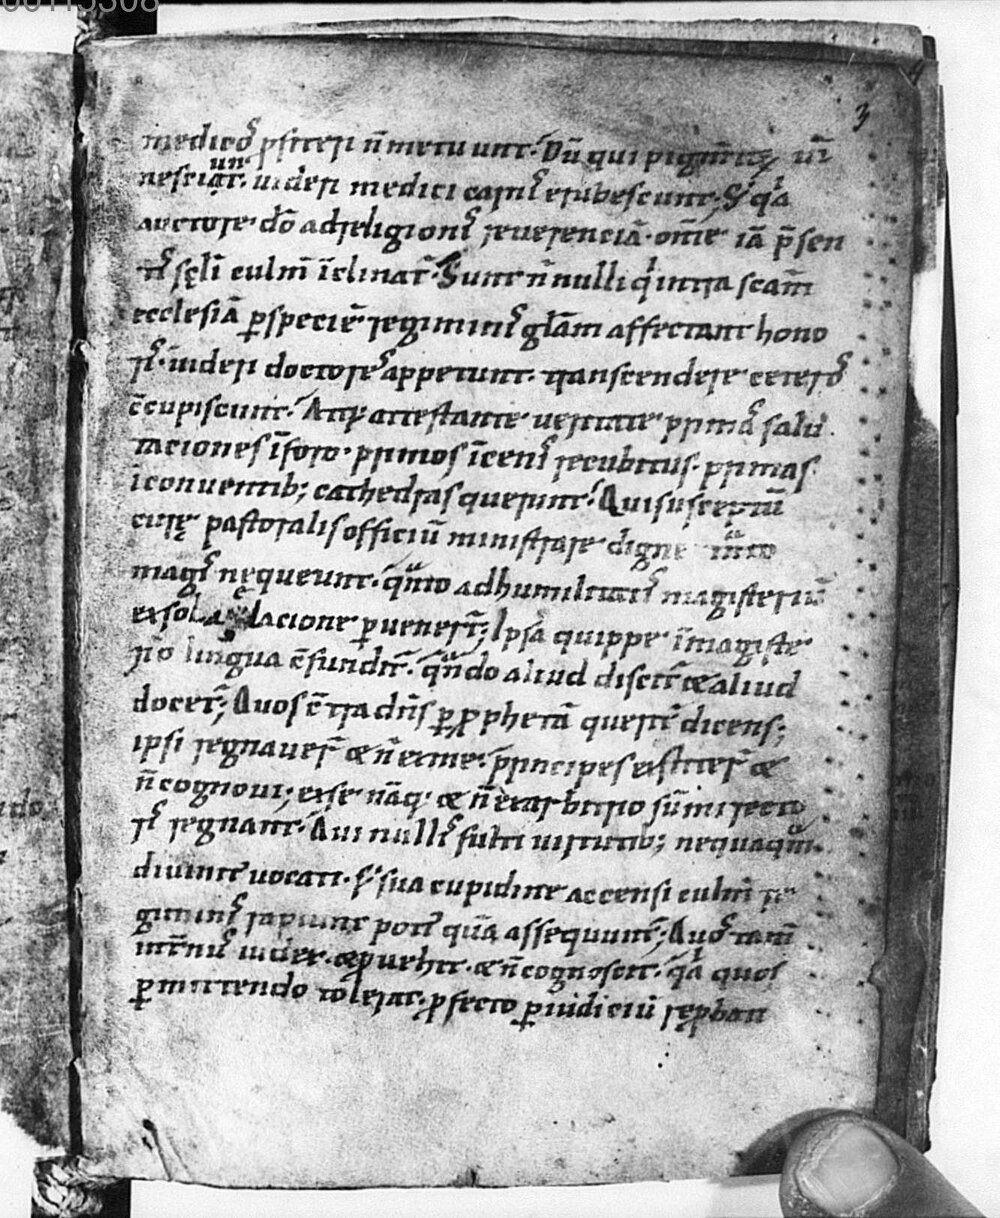 00115308
3
medicos̄ ꝓfiteri n̄ metuunt· Dū qui pigm̄toꝝ uī
nesciunt· uideri medici carnis erubescunt· S; qa
auctore dō ad religionis reuerenciā· om̄e iā p̄sen
tis sęcl̄i culm̄ īclinat̄· Sunt n̄nulli qi intra scam̄
ecclesiā ꝑ speciē regiminis gl̄am affectant hono
ris· uideri doctores appetunt· transcendere ceteros
c̄cupiscunt· Atq; attestante ueritate primas salu
taciones ī foro· primos ī cenis recubitus· primas
ī conuentib; cathedras querunt· Qui susceptū
curę pastoralis officiū ministrare digne tanto
magis nequeunt· qn̄to ad humilitatis magisteriū
ex sola elacione ꝑuenerт̄; Ipsa quippe ī magiste
rio lingua c̄fundit̄· qn̄do aliud discit̄ & aliud
docet̄; Quos c̄tra dn̄s ꝑ ꝓphetā querit̄ dicens;
ipsi regnauer̄ & n̄ ex me· principes exstiter̄ &
n̄ cognoui; ex se nāq; & n̄ ex arbitrio sūmi recto
ris regnant· Qui nullis fulti uirtutib; nequaqm̄
diuinit̄ uocati· s; sua cupidine accensi culm̄ re
giminis rapiunt poti' quā assequunt̄; Quos tam̄
intn̄us iudex· & ꝓuehit· & n̄ cognoscit· qa quos
ꝑmittendo tolerat· ꝓfecto ꝑ iudiciū rep̄ban